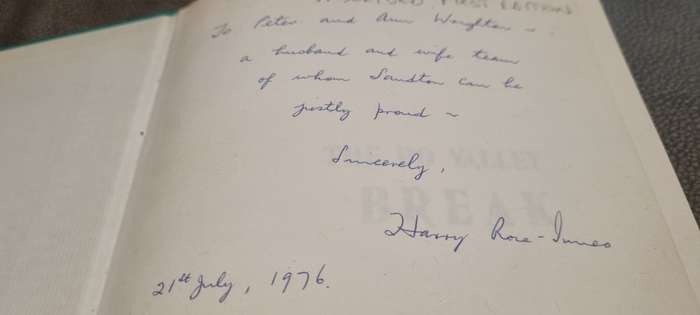 SIGNED FIRST EDITION
To Peter and Ann Wrighton ~
a husband and wife team
of whom Sandton can be
justly proud ~
Sincerely,
THE PO VALLEY
BREAK
Harry Rose-Innes
21st July, 1976.